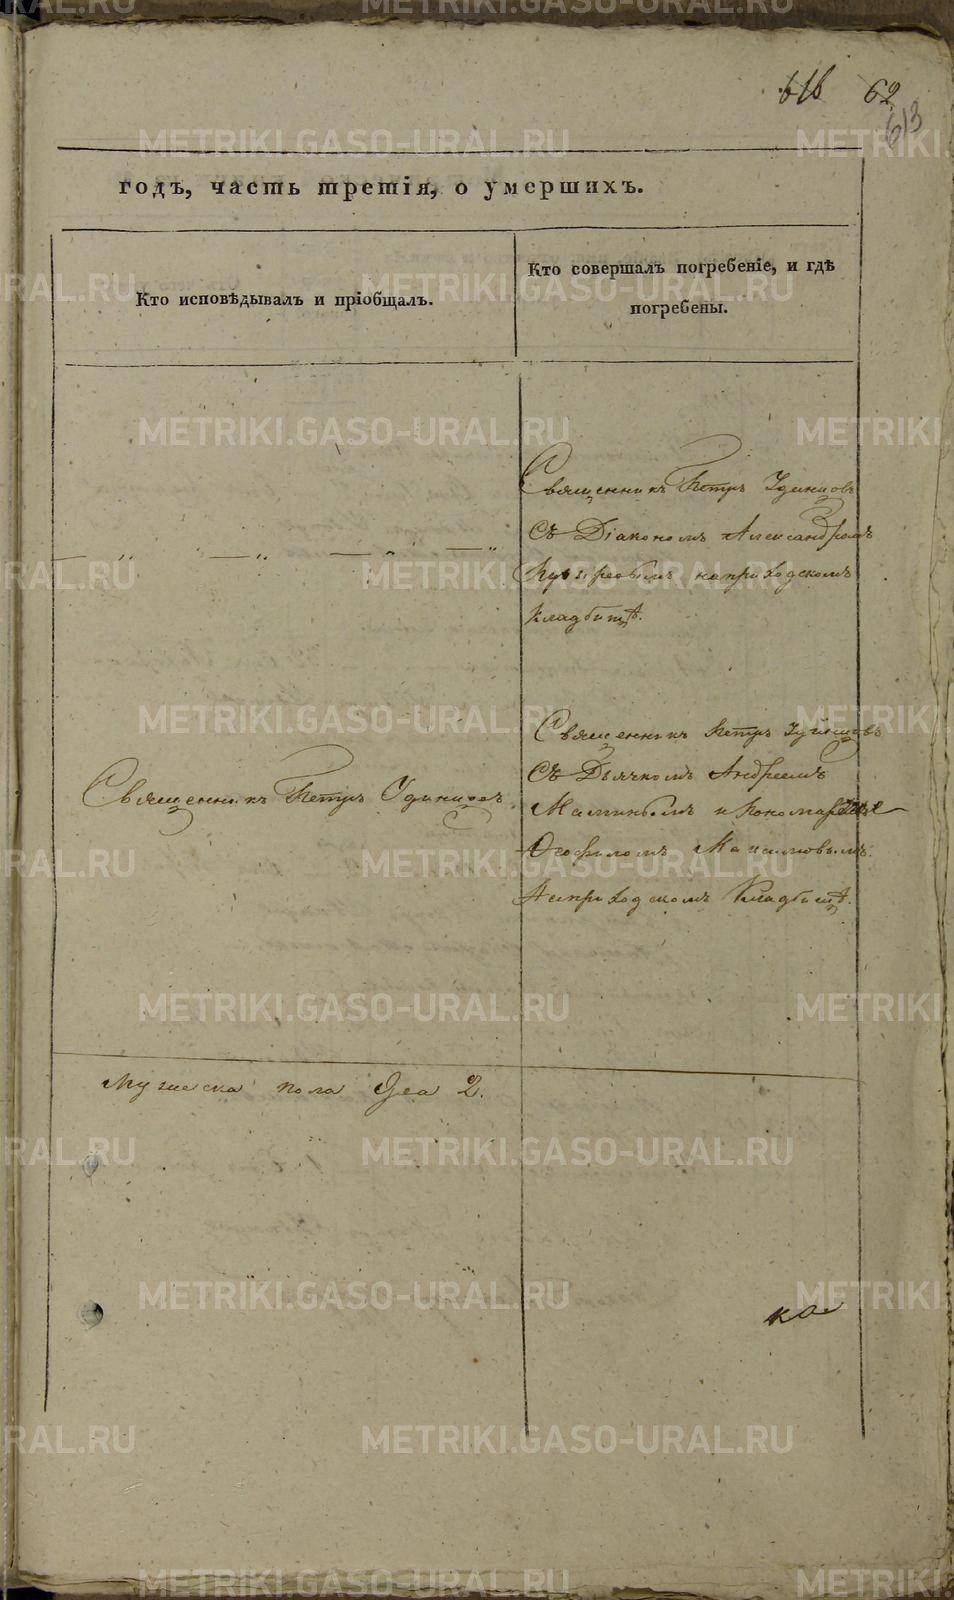 62
613
годъ, часть третія, о умершихъ.
Кто исповѣдывалъ и пріобщалъ.
Кто совершалъ погребеніе, и гдѣ
погребены.
Священникъ Петръ Удинцовъ
Съ Діакономъ Александромъ
наприходскомъ
Кладбищѣ.
Священникъ Петръ Удинцовъ
Священникъ Петръ Удинцовъ
Съ Дьячкомъ Андреемъ
и Пономаремъ
Ѳеофиломъ
Наприходскомъ Кладбищѣ.
Мужеска пола Два 2.
ка
METRIKI.GASO-URAL.RU